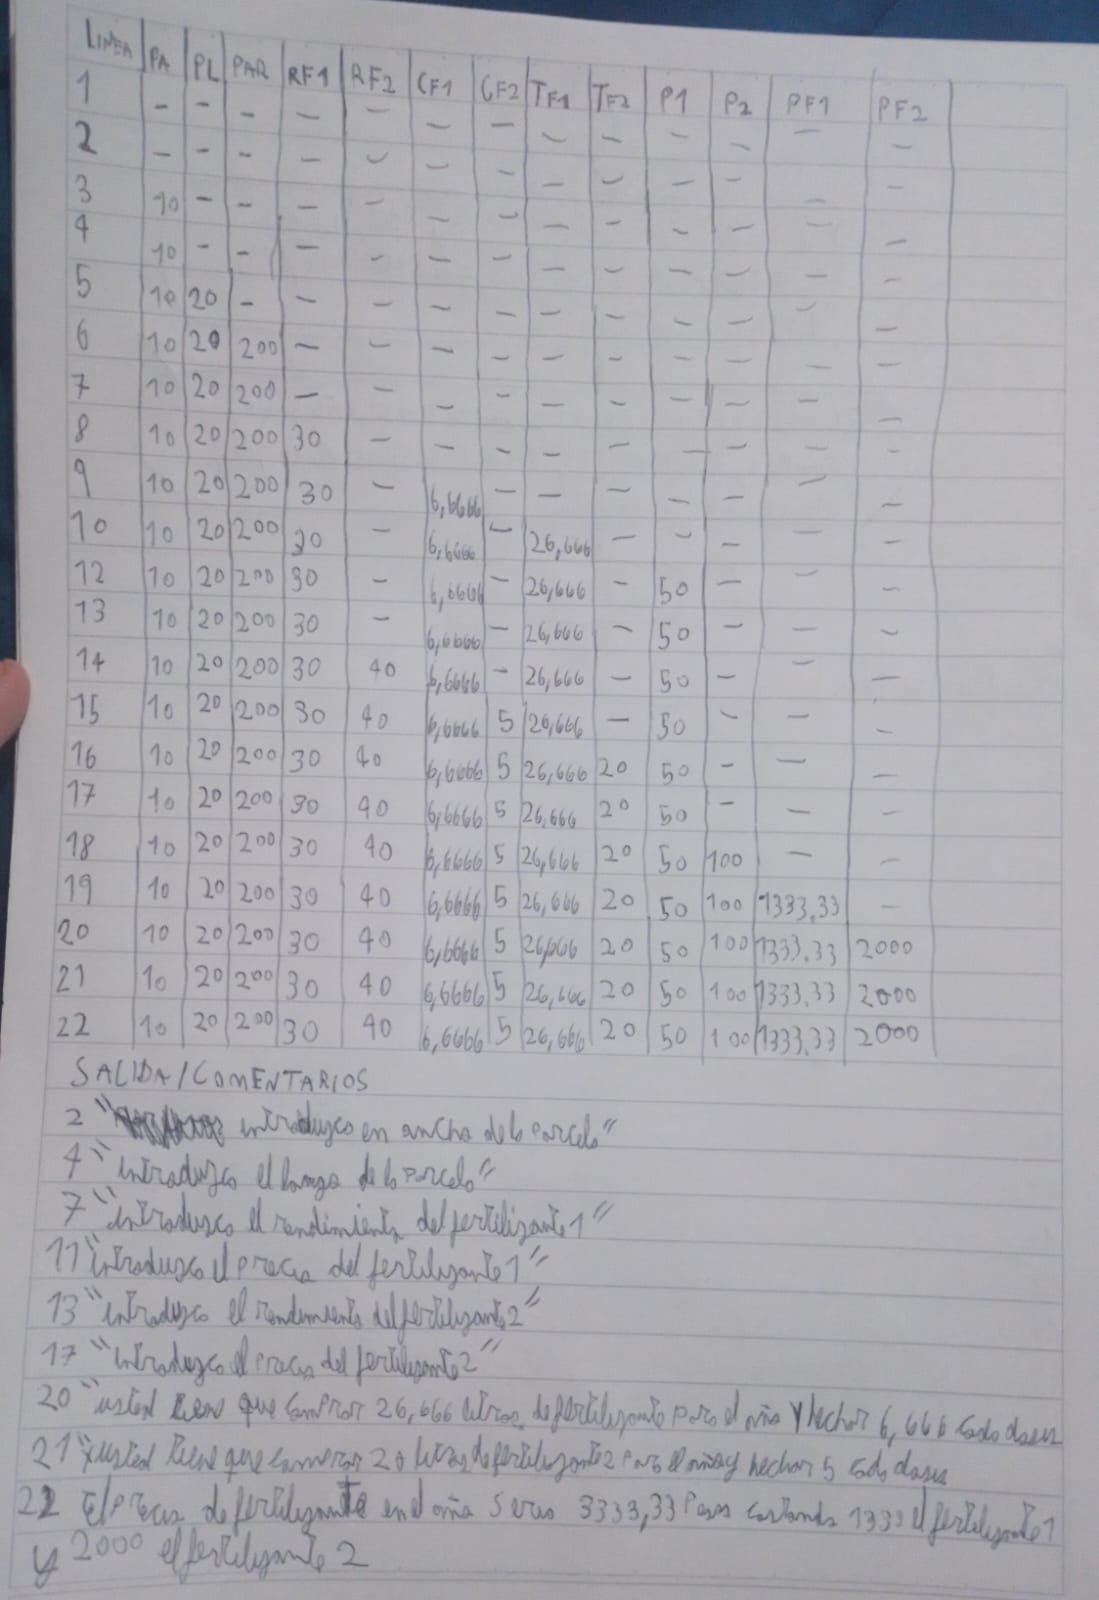 LINEA PA PL PAR RF1 RF2 CF1 CF2 TF1 TF2 P1 P2 PF1 PF2
1 - - - - - - - - - - - - -
2 - - - - - - - - - - - - -
3 10 - - - - - - - - - - - -
4 10 - - - - - - - - - - - -
5 10 20 - - - - - - - - - - -
6 10 20 200 - - - - - - - - - -
7 10 20 200 - - - - - - - - - -
8 10 20 200 30 - - - - - - - - -
9 10 20 200 30 - 6,6666 - - - - - - -
10 10 20 200 30 - 6,6666 - 26,666 - - - - -
12 10 20 200 30 - 6,6666 - 26,666 - 50 - - -
13 10 20 200 30 - 6,6666 - 26,666 - 50 - - -
14 10 20 200 30 40 6,6666 - 26,666 - 50 - - -
15 10 20 200 30 40 6,6666 5 26,666 - 50 - - -
16 10 20 200 30 40 6,6666 5 26,666 20 50 - - -
17 10 20 200 30 40 6,6666 5 26,666 20 50 - - -
18 10 20 200 30 40 6,6666 5 26,666 20 50 100 - -
19 10 20 200 30 40 6,6666 5 26,666 20 50 100 1333,33 -
20 10 20 200 30 40 6,6666 5 26,666 20 50 100 1333,33 2000
21 10 20 200 30 40 6,6666 5 26,666 20 50 100 1333,33 2000
22 10 20 200 30 40 6,6666 5 26,666 20 50 100 1333,33 2000
SALIDA/COMENTARIOS
2 "introduzca en ancho de la parcela"
4 "introduzca el largo de la parcela"
7 "introduzca el rendimiento del fertilizante 1"
11 "introduzca el precio del fertilizante 1"
13 "introduzca el rendimiento del fertilizante 2"
17 "introduzca el precio del fertilizante 2"
20 "usted tiene que comprar 26,666 litros de fertilizante para el año y hechar 6,666 cada dosis
21 "usted tiene que comprar 20 litros de fertilizante 2 para el año y hechar 5 cada dosis
22 El precio de fertilizante en el año seria 3333,33 pesos costando 1333 el fertilizante 1
y 2000 el fertilizante 2